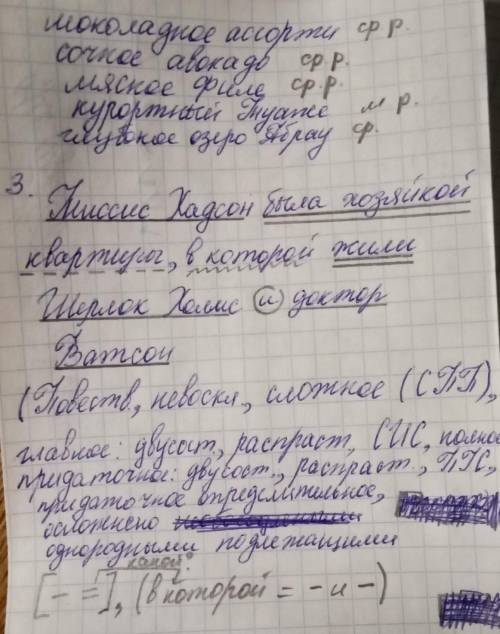 шоколадное ассорти ср р.
сочное авокадо ср.р.
мясное филе ср.р.
курортный Туапсе м р.
глубокое озеро Абрау ср.
3.
Миссис Хадсон была хозяйкой
квартиры, в которой жили
Шерлок Холмс и доктор
Ватсон
(Повеств., невоскл., сложное (СПП),
главное: двусост., распраст., СИС, полное
придаточное: двусост., распраст., ПГС,
придаточное определительное,
осложнено
однородными подлежащими
какой?
[- =], (в которой = - и -)